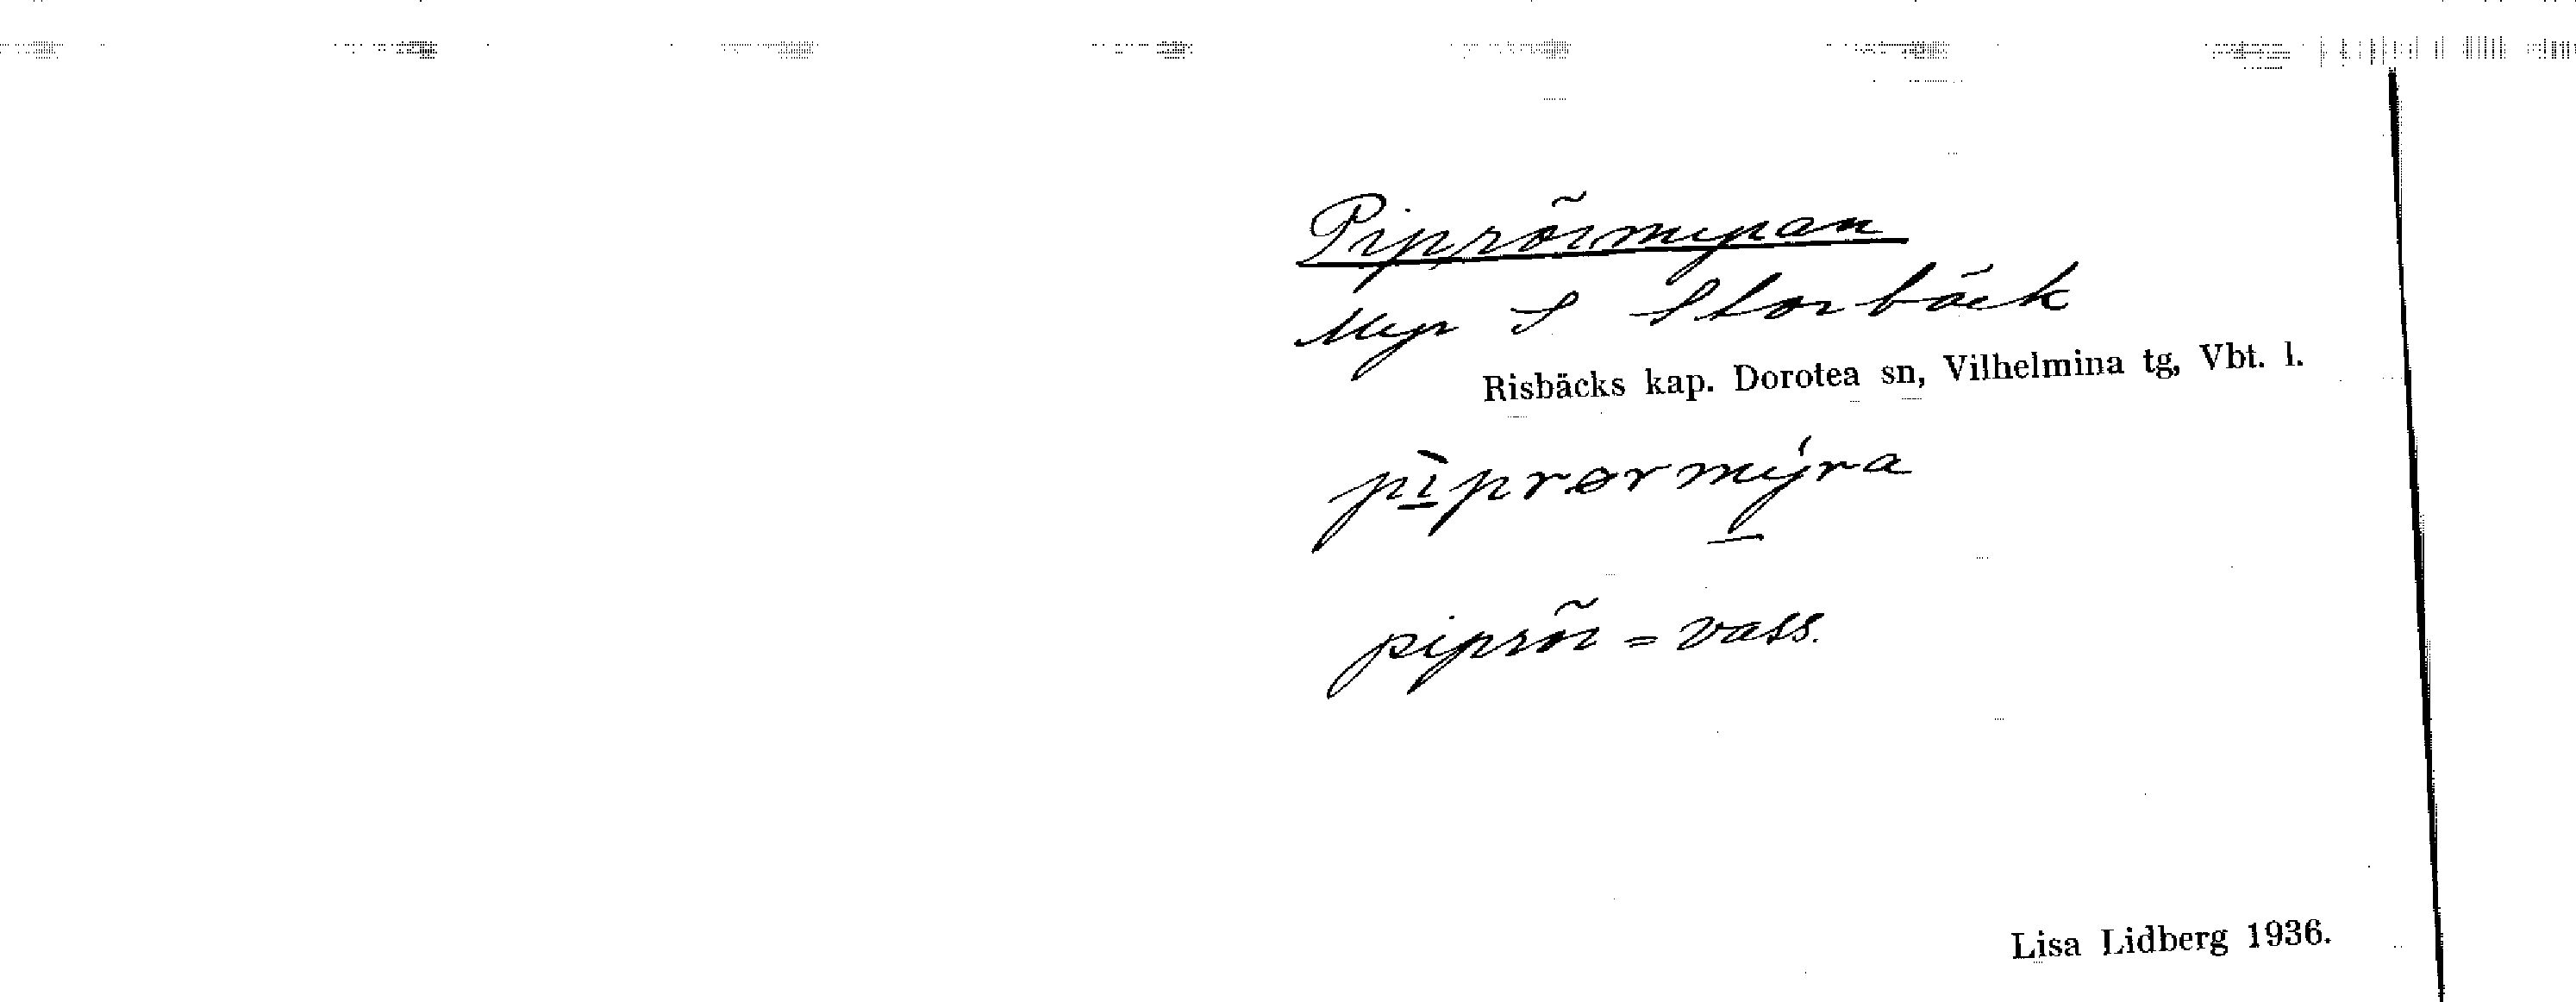 Piprörmyran
Myr S Storbäck
Risbäcks kap. Dorotea sn, Vilhelmina tg, Vbt. l.
pìprørmýra
piprör = vass.
Lisa Lidberg 1936.